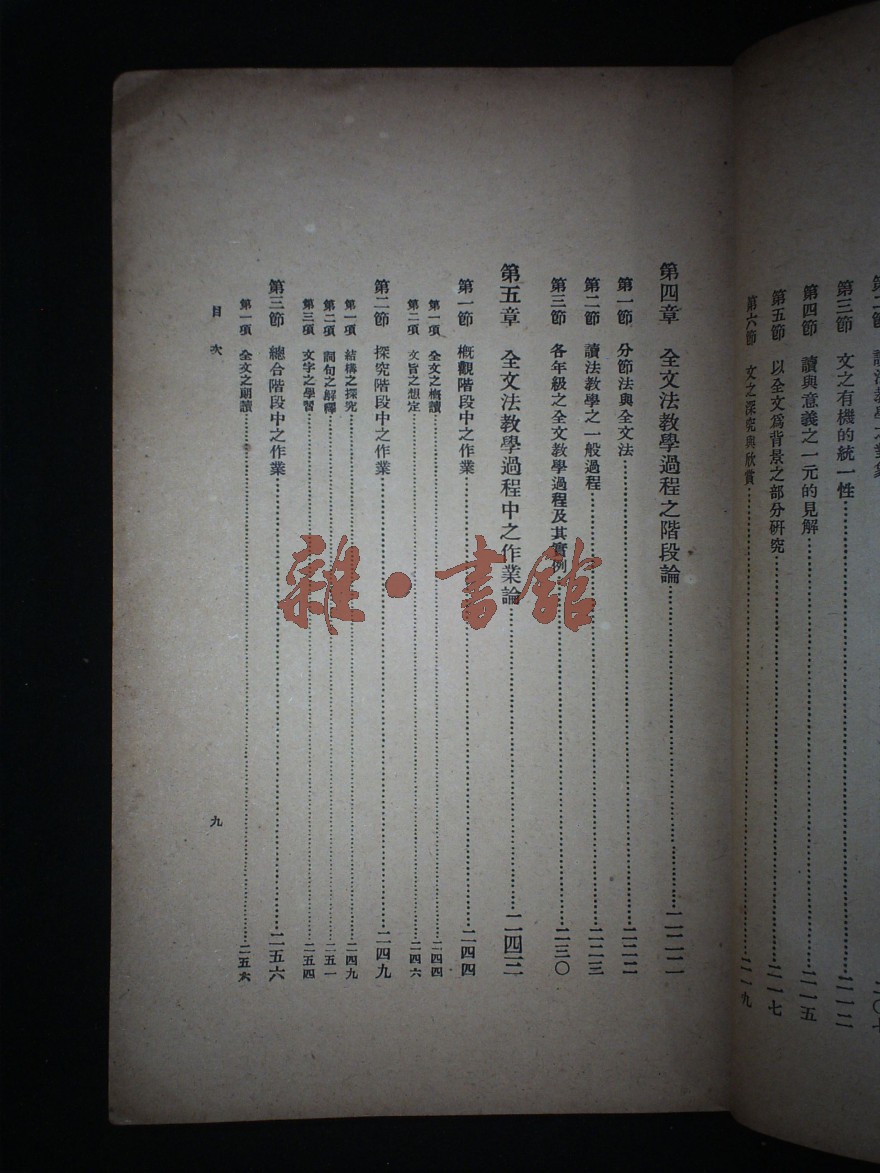 第三節 文之有機的統一性……二一二
第四節 讀與意義之一元的見解……二一五
第五節 以全文爲背景之部分研究……二一七
第六節 文之深究與欣賞……二一九
第四章 全文法教學過程之階段論……二二二
第一節 分節法與全文法……二二二
第二節 讀法教學之一般過程……二二三
第三節 各年級之全文教學過程及其實例……二三〇
第五章 全文法教學過程中之作業論……二四三
第一節 概觀階段中之作業……二四四
第一項 全文之概讀……二四四
第二項 文旨之想定……二四六
第二節 探究階段中之作業……二四九
第一項 結構之探究……二四九
第二項 詞句之解釋……二五一
第三項 文字之學習……二五四
第三節 總合階段中之作業……二五六
第一項 全文之朗讀……二五六
目次 九
雜·書館